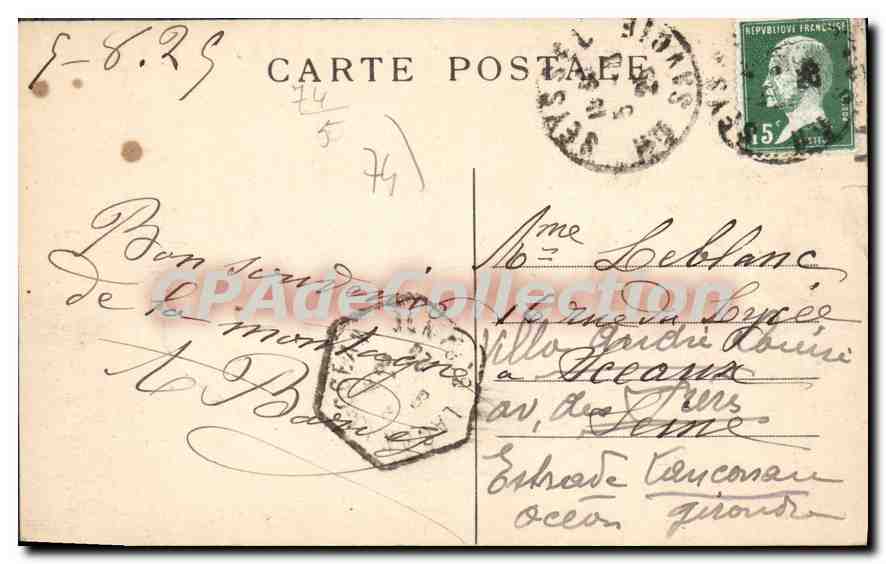 5-8.25
CARTE POSTALE
REPVBLIQUE FRANÇAISE
15c
74
5
74)
Bon souvenir
de la montagne
Mme Leblanc
16 rue du Lycée
Villa André Louise
à Sceaux
av, des
Seine
Estrade
océan gironde
SEYSSEL
Hte SAVOIE
CPAdeCollection